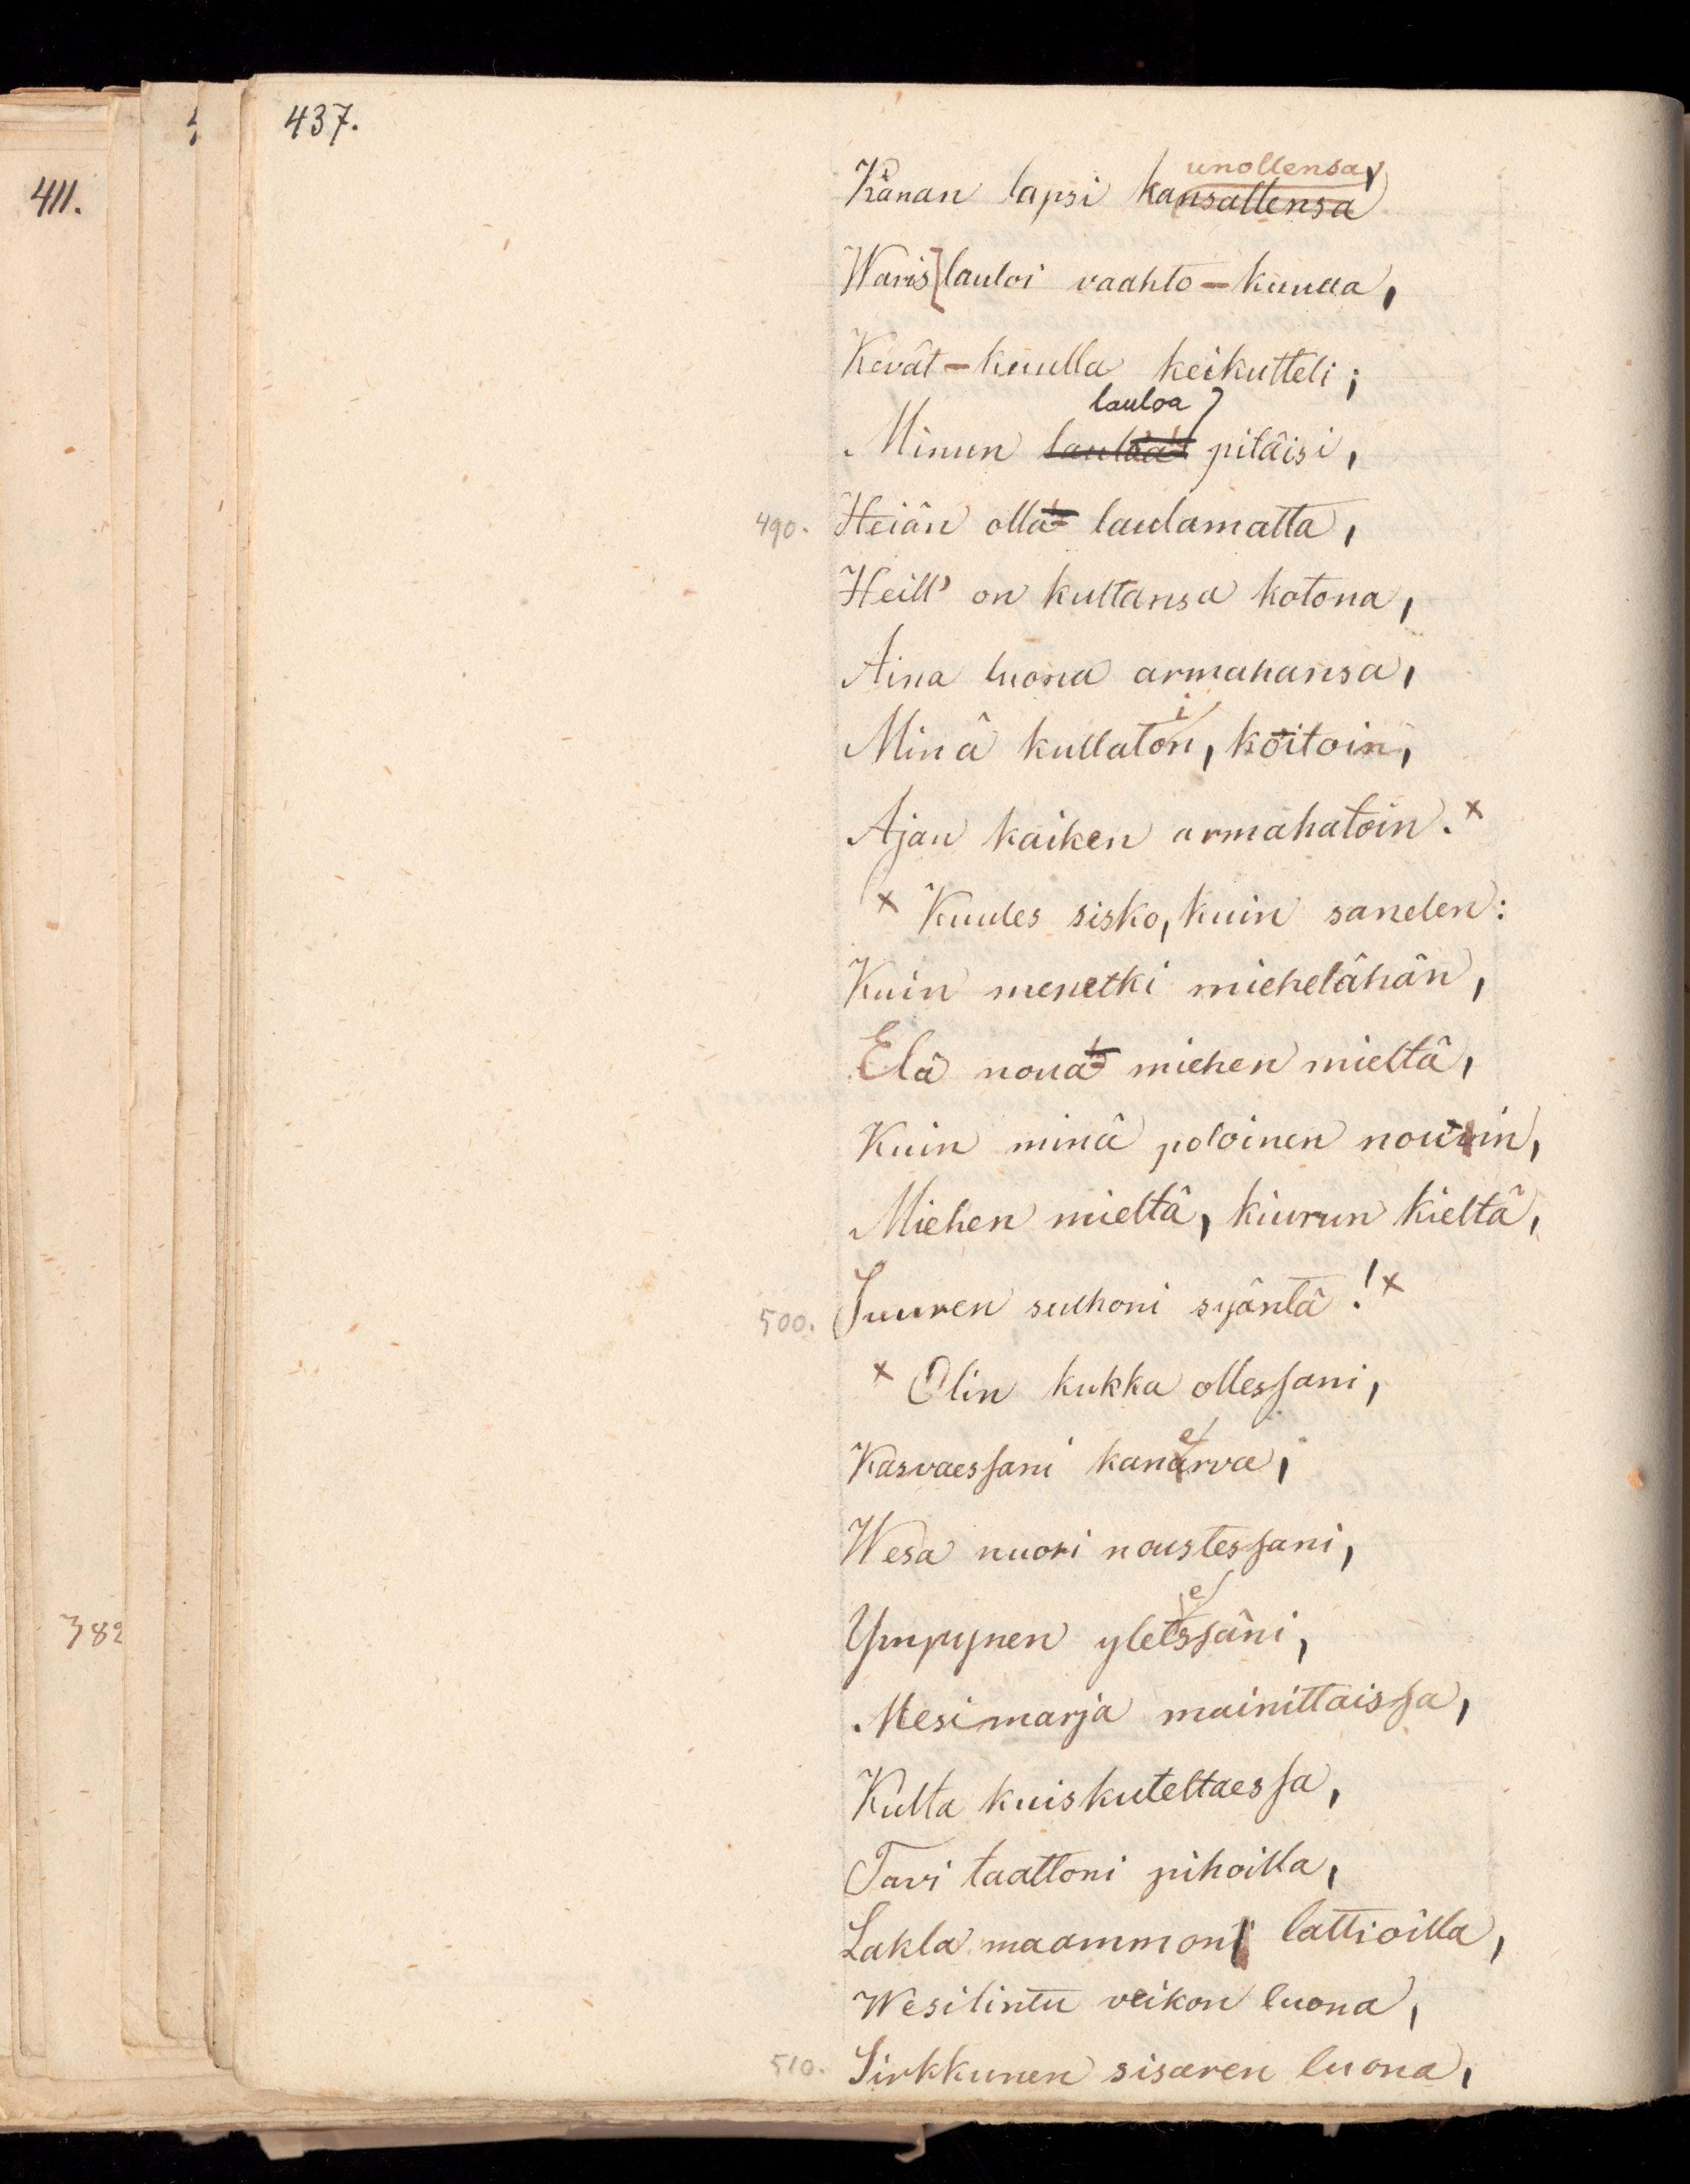 437.
411.
382
unollensa,
Kånan lapsi kansattensa
Waris lauloi vaahto-kuulla,
Kevät-kuulla keikutteli;
lauloa
Minun pitäisi,
490. Heiän olla laulamatta,
Heill' on kultansa kotona,
Aina luona armahansa,
i
Minä kullaton, koitoin,
Ajan kaiken armahatoin. x
x Kuules sisko, kuin sanelen:
Kuin menetki miehelähän,
Elä noua miehen mieltä,
Kuin minä poloinen nouin,
Miehen mieltä, kiurun kieltä,
500. Suuren sulhoni syäntä! x
x Olin kukka ollessani,
e
Kasvaessani kanarva,
Wesa nuori noustessani,
e
Ympynen yletssäni,
Mesimarja mainittaissa,
Kulta kuiskuteltaessa,
Tavi taattoni pihoilla,
Lakla maammoni lattioilla,
Wesilintu veikon luona,
510. Sirkkunen sisaren luona,